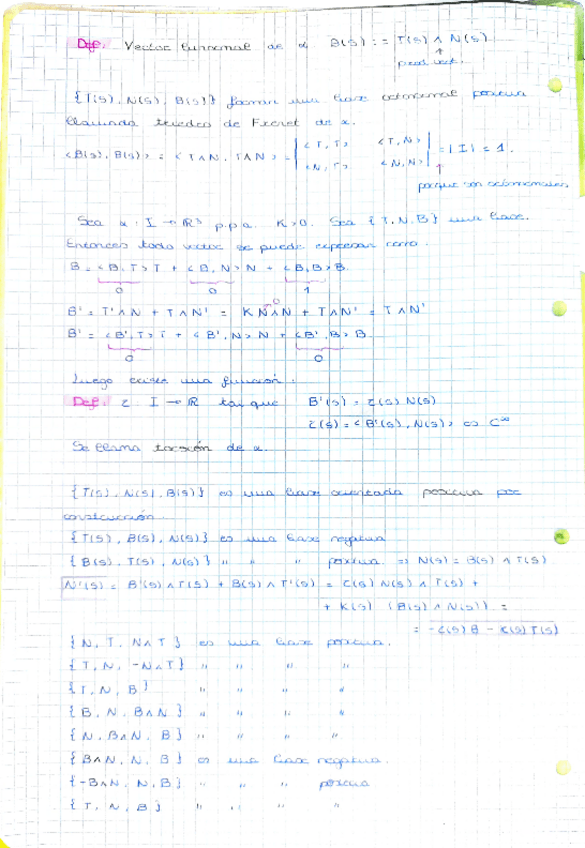 Def. Vector binormal de α B(s) := T(s) ∧ N(s)
prod. vect.
{T(s), N(s), B(s)} forman una base ortonormal positiva
llamada triedro de Frenet de α.
<B(s), B(s)> = <T∧N, T∧N> = |<T,T> <T,N>| = |I| = 1.
|<N,T> <N,N>|
porque son ortonormales
Sea α: I → R³ p.p.a. K>0. Sea {T,N,B} una base.
Entonces todo vector se puede expresar como:
B = <B,T>T + <B,N>N + <B,B>B
0 0 1
B' = T'∧N + T∧N' = K N∧N + T∧N' = T∧N'
0
B' = <B',T>T + <B',N>N + <B',B>B
0 0
Luego existe una función:
Def. τ: I → R tal que B'(s) = τ(s) N(s)
τ(s) = <B'(s), N(s)> es C∞
Se llama torsión de α.
{T(s), N(s), B(s)} es una base orientada positiva por
construcción.
{T(s), B(s), N(s)} es una base negativa
{B(s), T(s), N(s)} " " " positiva ⇒ N(s) = B(s) ∧ T(s)
N'(s) = B'(s)∧T(s) + B(s)∧T'(s) = τ(s) N(s)∧T(s) +
+ K(s) (B(s)∧N(s)) =
= -τ(s) B - K(s) T(s)
{N, T, N∧T} es una base positiva.
{T, N, -N∧T} " " " "
{T, N, B} " " " "
{B, N, B∧N} " " " "
{N, B∧N, B} " " " "
{B∧N, N, B} es una base negativa.
{-B∧N, N, B} " " " positiva
{T, N, B} " " " "